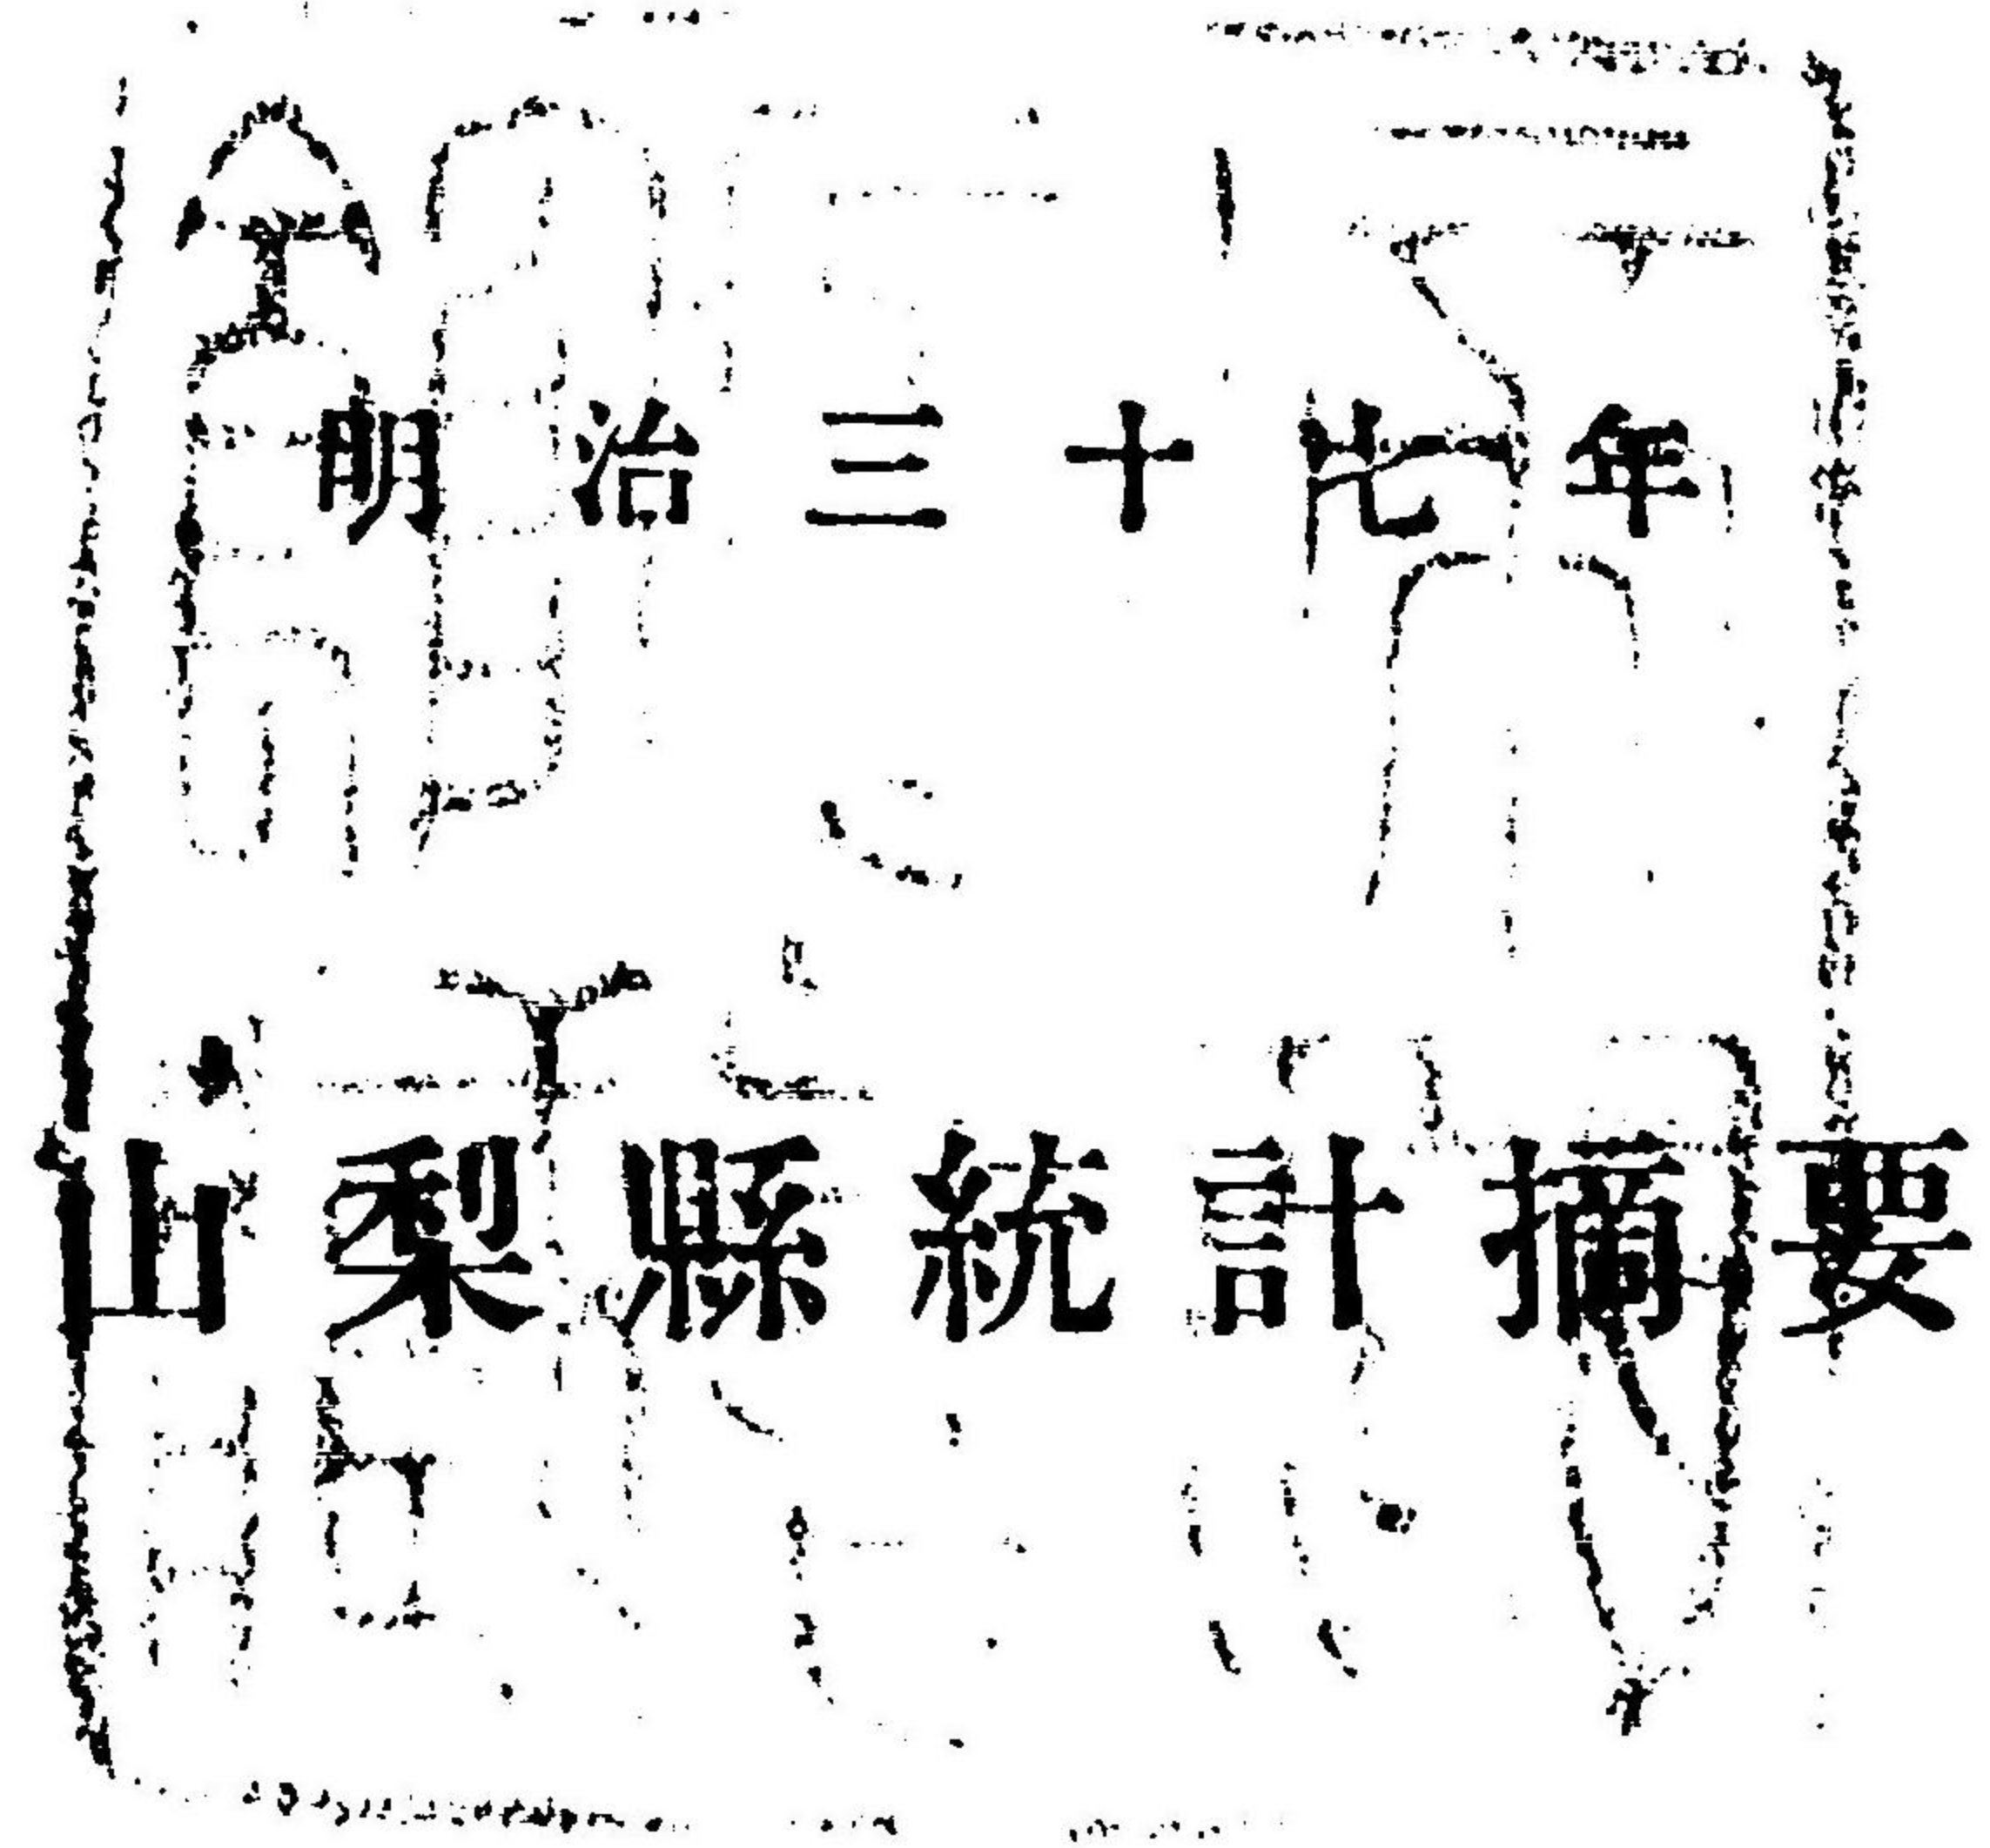 明治三十七年
山梨縣統計摘要